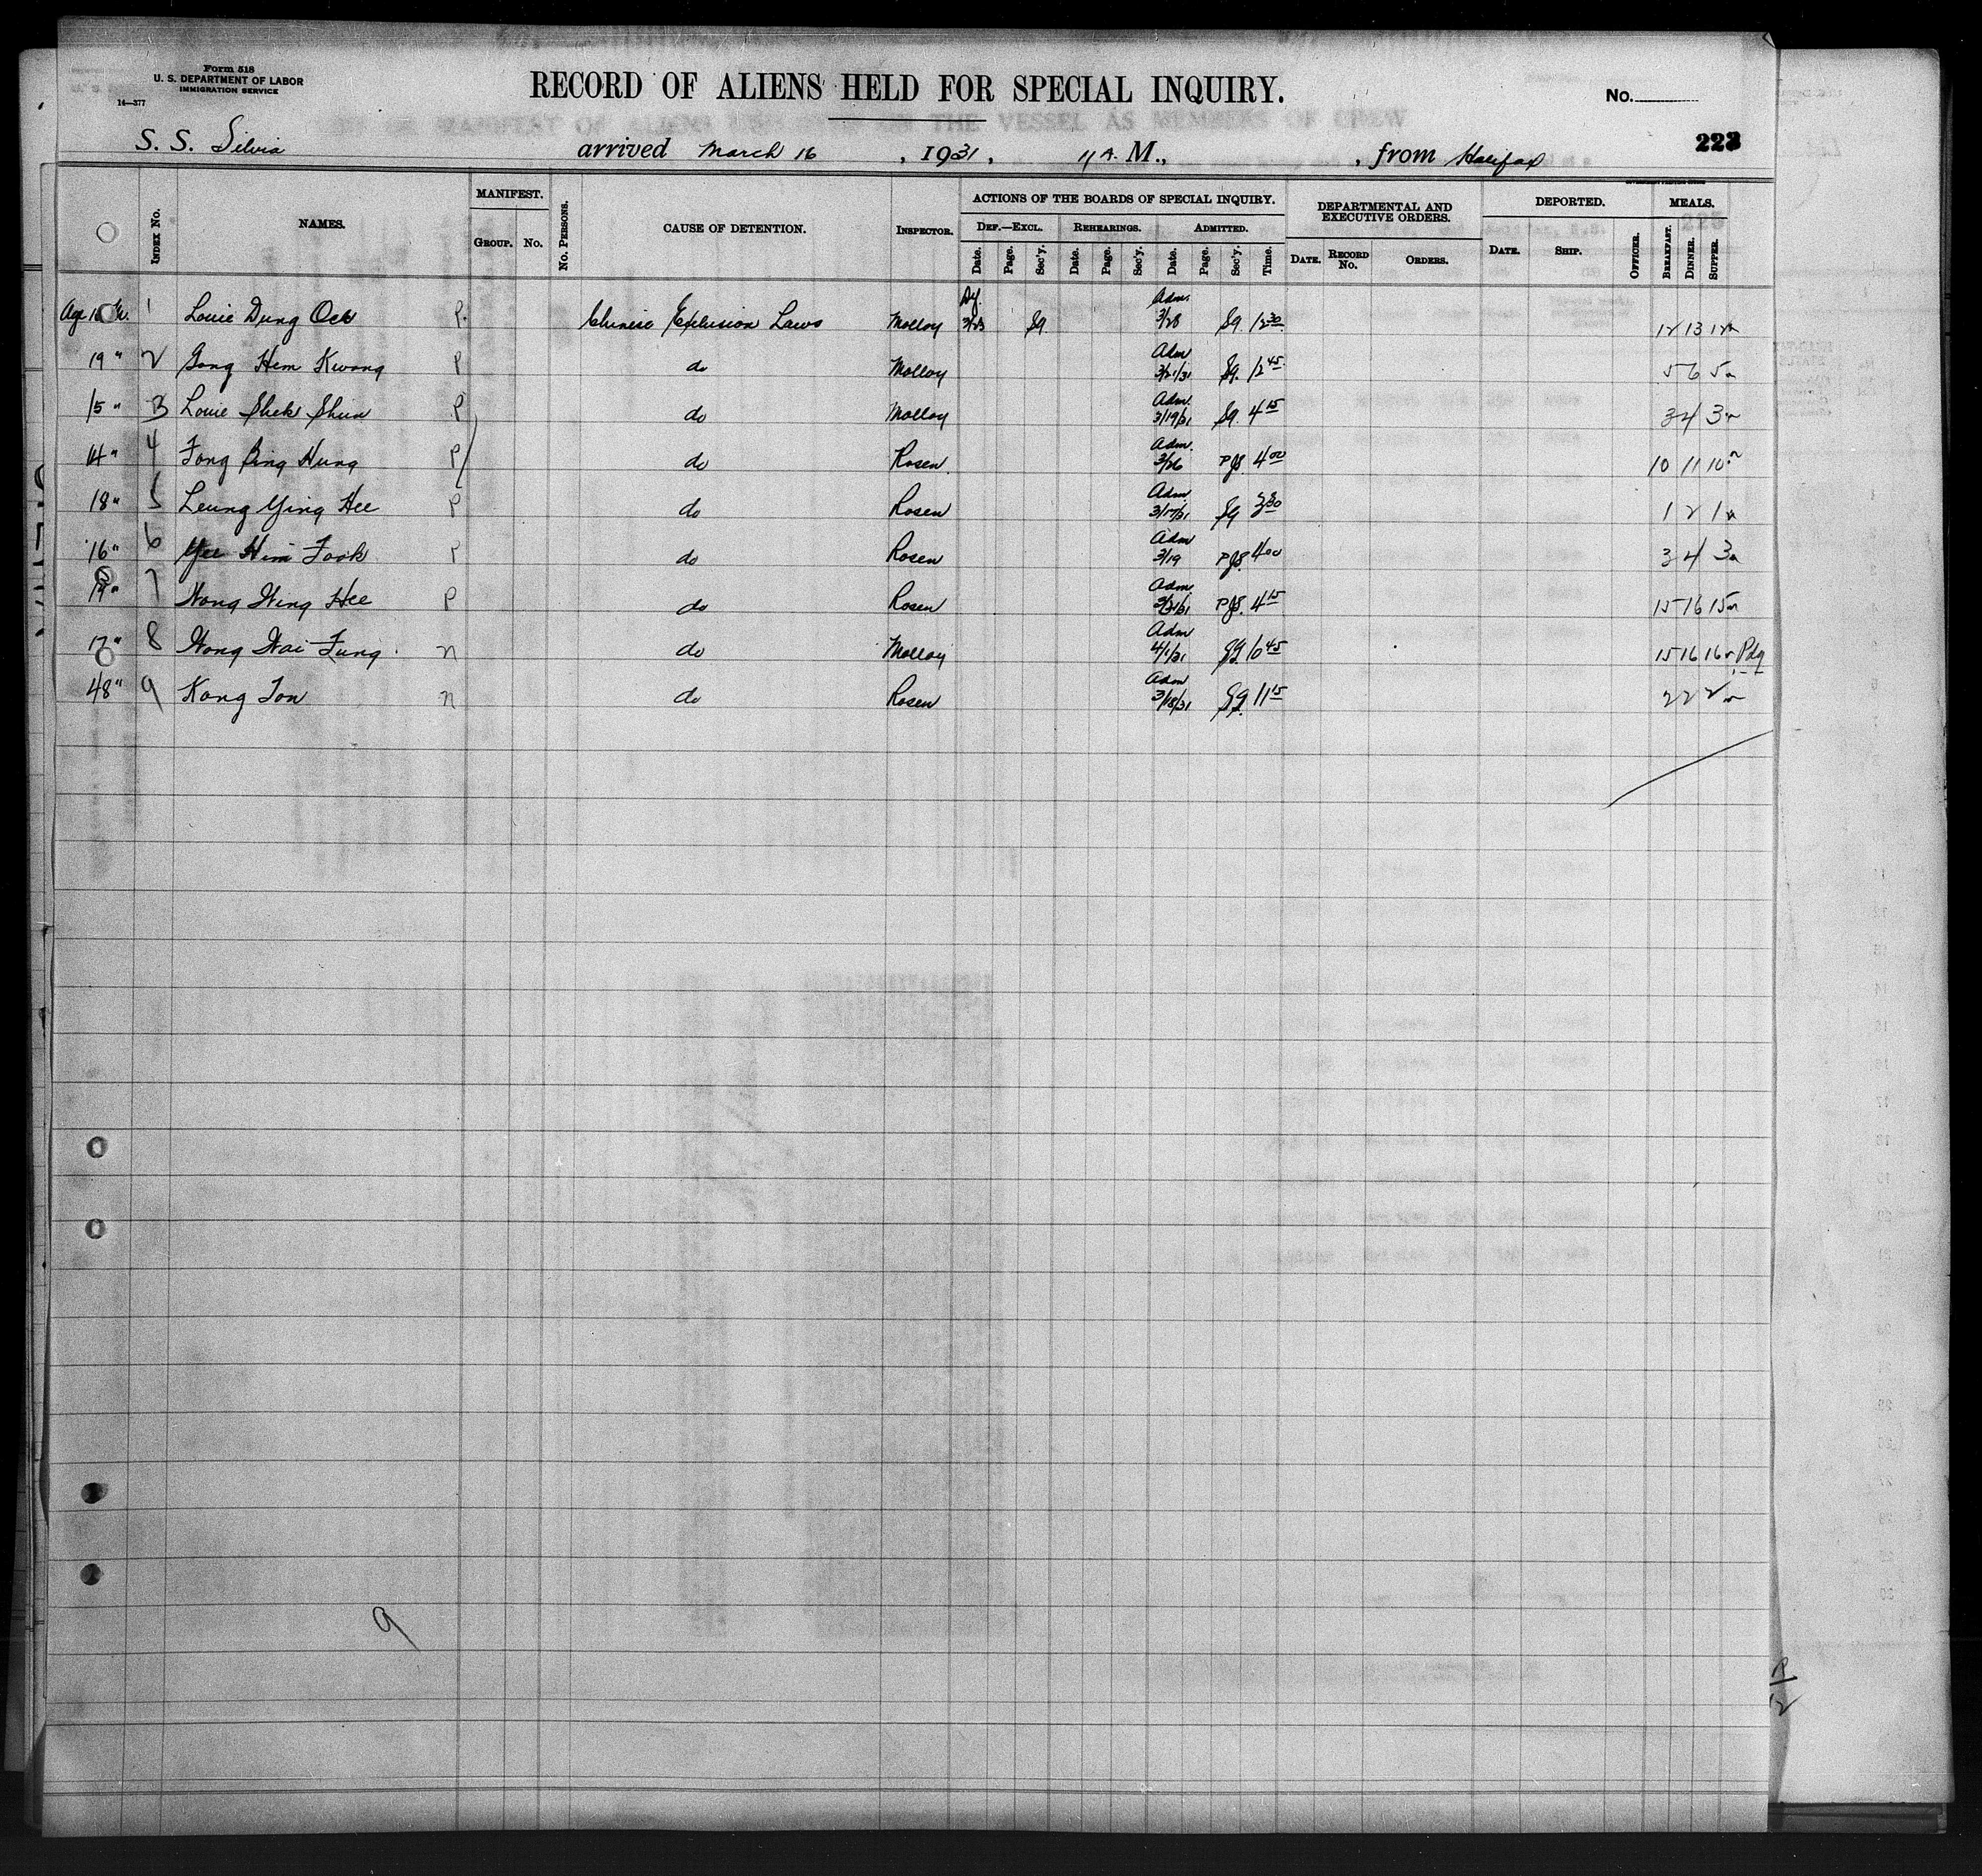 Form 518
U. S. DEPARTMENT OF LABOR
IMMIGRATION SERVICE
14—377
RECORD OF ALIENS HELD FOR SPECIAL INQUIRY.
No.
223
S. S. Silvia arrived March 16, 1931, 11 A. M., from Halifax
INDEX NO. NAMES. MANIFEST. GROUP. NO. NO. PERSONS. CAUSE OF DETENTION. INSPECTOR. ACTIONS OF THE BOARDS OF SPECIAL INQUIRY. DEPARTMENTAL AND EXECUTIVE ORDERS. DEPORTED. MEALS.
DEF.—EXCL. REHEARINGS. ADMITTED.
Date. Page. Sec'y. Date. Page. Sec'y. Date. Page. Sec'y. Time. DATE. RECORD No. ORDERS. DATE. SHIP. OFFICER. BREAKFAST. DINNER. SUPPER.
Age 1 Louie Dung P. Chinese Exclusion Laws Molloy 3/23 Sg. Adm. 3/28 Sg 12 30 12 13 12
19 " 2 Gong Hem Kwong P do Molloy Adm 3/21/31 Sg. 12 45 5 6 5
15 " 3 Louie Shek Shun P do Molloy Adm. 3/19/31 Sg. 4 15 3 4 3
14 " 4 Fong Bing Hung P do Rosen Adm. 3/26 PJS 4 00 10 11 10
18 " 5 Leung Ying Hee P do Rosen Adm. 3/17/31 Sg 1 2 1
16 " 6 Yee Him Fook P do Rosen Adm 3/19 PJS. 4 00 3 4 3
7 Wong Wing Hee P do Rosen Adm. 3/31/31 PJS. 4 15 15 16 15
17 " 8 Wong Wai Fung n do Molloy Adm 4/1/31 Sg 10 45 15 16 16
48 " 9 Kong Ton n do Rosen Adm 3/18/31 Sg. 11 15 2 2 2
9